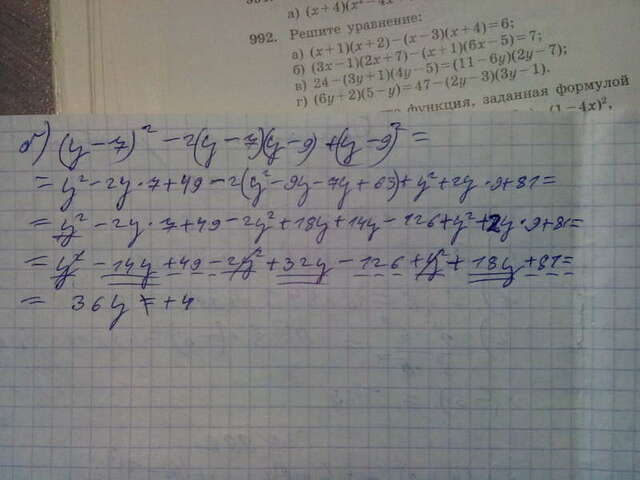 а) (x+4)(x²−4x
992. Решите уравнение:
а) (x+1)(x+2)−(x−3)(x+4)=6;
б) (3x−1)(2x+7)−(x+1)(6x−5)=7;
в) 24−(3y+1)(4y−5)=(11−6y)(2y−7);
г) (6y+2)(5−y)=47−(2y−3)(3y−1).
функция, заданная формулой
(1−4x)²,
(y−7)² −2(y−7)(y−9)+(y−9)²=
= y²−2y·7+49−2(y²−9y−7y+63)+y²+2y·9+81=
= y²−2y·7+49−2y²+18y+14y−126+y²+2y·9+81=
= y²−14y+49−2y²+32y−126+y²+18y+81=
= 36y=+4